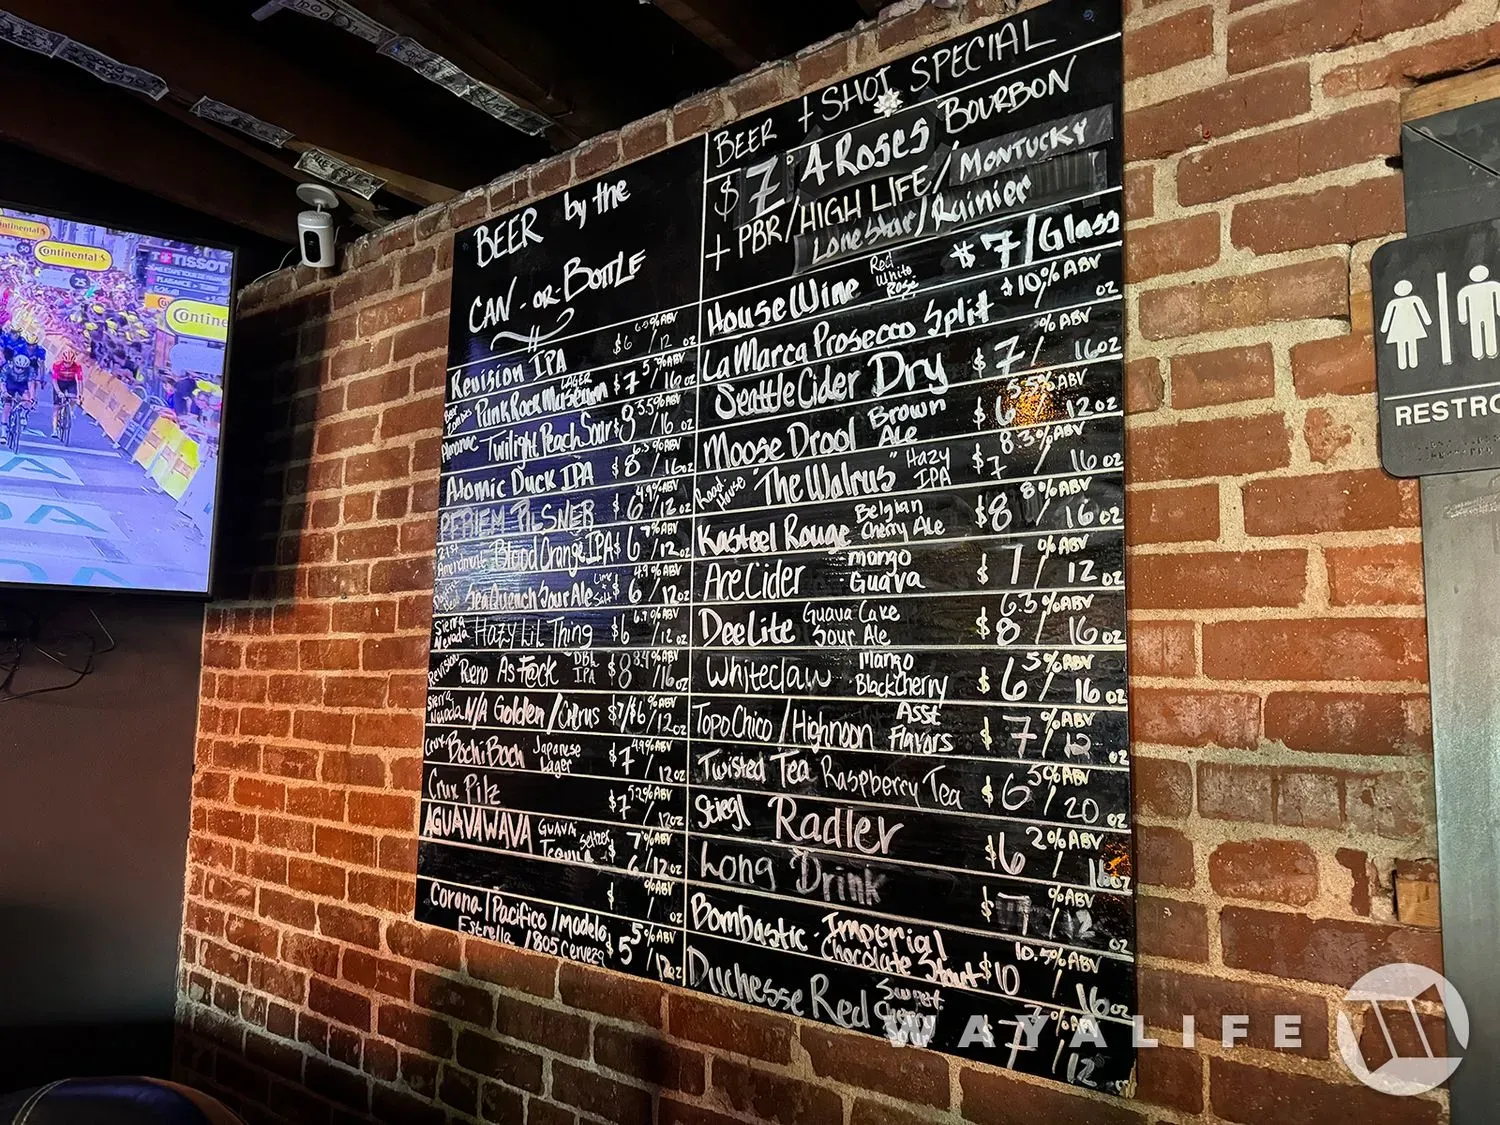 Continental
Continental
TISSOT
Contine
BEER by the
CAN-OR-BOTTLE
Revision IPA $6 6.5%ABV / 12 oz
Beer Zombies Punk Rock Museum LAGER $7 5%ABV / 16 oz
Almanac Twilight Peach Sour $8 3.5%ABV / 16 oz
Atomic Duck IPA $8 6.5%ABV / 16oz
PFRIEM PILSNER $6 4.9%ABV / 12 oz
21st Amendment Blood Orange IPA $6 7%ABV / 12 oz
SeaQuench Sour Ale Lime + Salt $6 4.9%ABV / 12oz
Sierra Nevada Hazy Lil Thing $6 6.7%ABV / 12 oz
Revision Reno As F@ck DBL IPA $8 8.4%ABV / 16oz
Sierra Nevada N/A Golden/Citrus $7/$6 %ABV / 12oz
Crux Bochi Boch Japanese Lager $7 4.9%ABV / 12oz
Crux Pilz $7 5.2%ABV / 12oz
AGUAVAWAVA GUAVA Tequila Seltzer $6 7%ABV / 12 oz
$ %ABV / oz
Corona/Pacifico/Modelo $5 5%ABV / 12oz
Estrella /805 Cerveza
BEER + SHOT SPECIAL
$7 4 Roses BOURBON
+ PBR/HIGH LIFE/MONTUCKY
Lone Star/Rainier
House Wine Red White Rose $7/Glass
La Marca Prosecco Split $10 %ABV oz
Seattle Cider Dry $7 %ABV / 16oz
Moose Drool Brown Ale $6 5.5%ABV / 12oz
Road House "The Walrus" Hazy IPA $7 8.3%ABV / 16 oz
Kasteel Rouge Belgian Cherry Ale $8 8%ABV / 16 oz
Ace Cider mango Guava $7 %ABV / 12 oz
DeeLite Guava Cake Sour Ale $8 6.3%ABV / 16 oz
Whiteclaw Mango Black Cherry $6 5%ABV / 16 oz
Topo Chico / Highnoon Asst Flavors $7 %ABV / 12 oz
Twisted Tea Raspberry Tea $6 5%ABV / 20 oz
Stiegl Radler $6 2%ABV / 16oz
Long Drink $7 %ABV / 12 oz
Bombastic - Imperial Chocolate Stout $10 10.5%ABV / 16oz
Duchesse Red Sweet Cherry $7 %ABV / 12
RESTRO
WAYALIFE